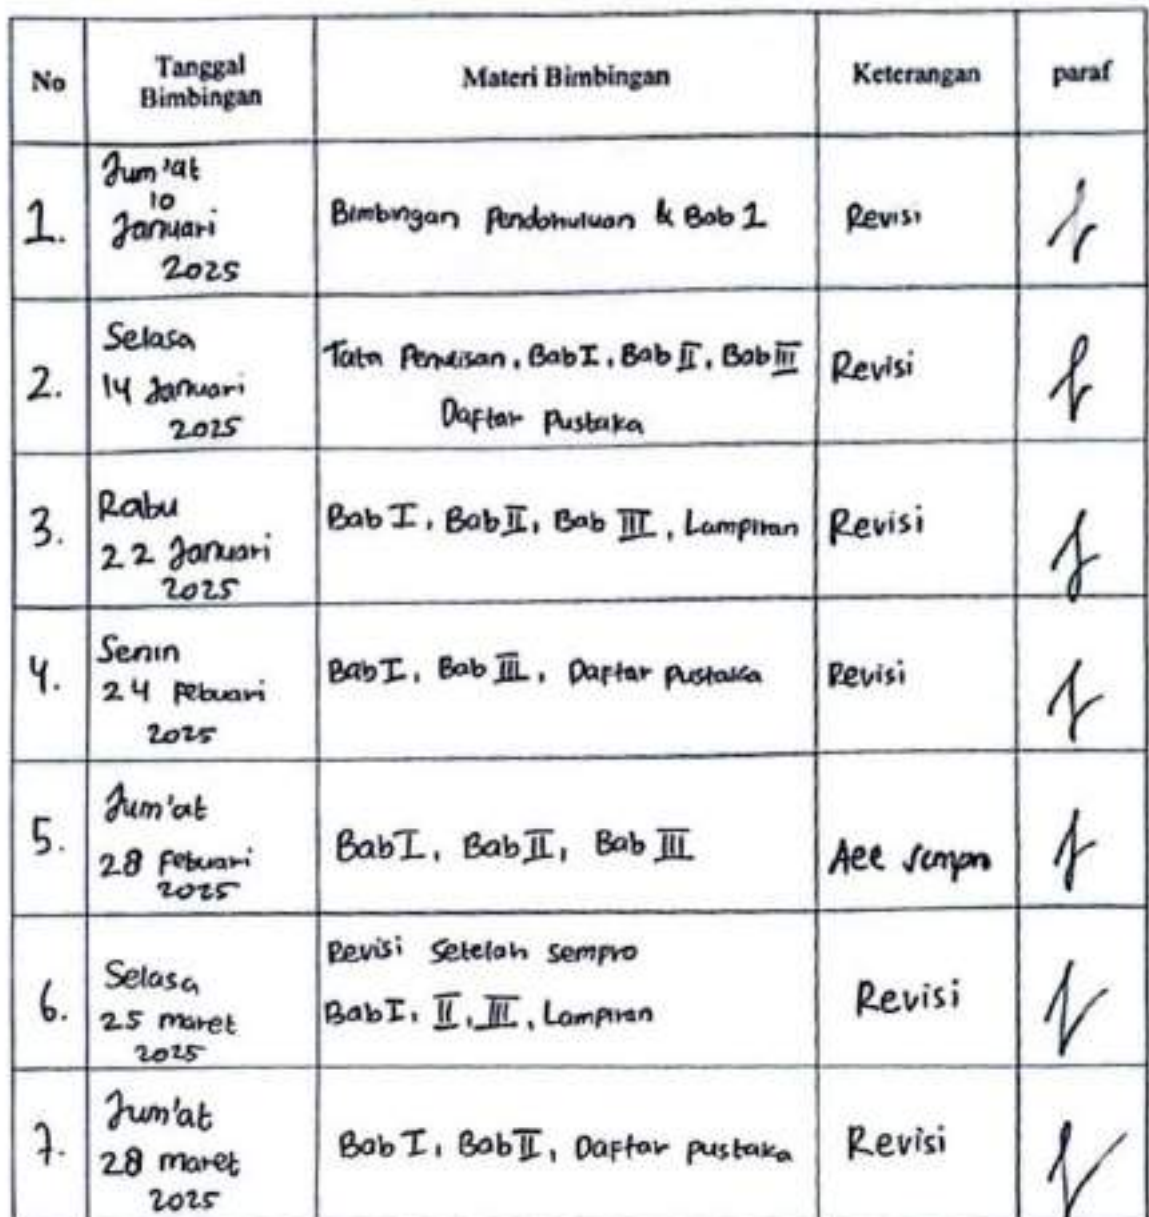 No
Tanggal
Bimbingan
Materi Bimbingan
Keterangan
paraf
1.
Jum'at
10
Januari
2025
Bimbingan Pendahuluan & Bab 1
Revisi
2.
Selasa
14 Januari
2025
Tata Penulisan, Bab I, Bab II, Bab III
Daftar Pustaka
Revisi
3.
Rabu
22 Januari
2025
Bab I, Bab II, Bab III, Lampiran
Revisi
4.
Senin
24 Febuari
2025
Bab I, Bab III, Daftar Pustaka
Revisi
5.
Jum'at
28 Febuari
2025
Bab I, Bab II, Bab III
Acc sempro
6.
Selasa
25 maret
2025
Revisi Setelah sempro
Bab I, II, III, Lampiran
Revisi
7.
Jum'at
28 maret
2025
Bab I, Bab II, Daftar pustaka
Revisi